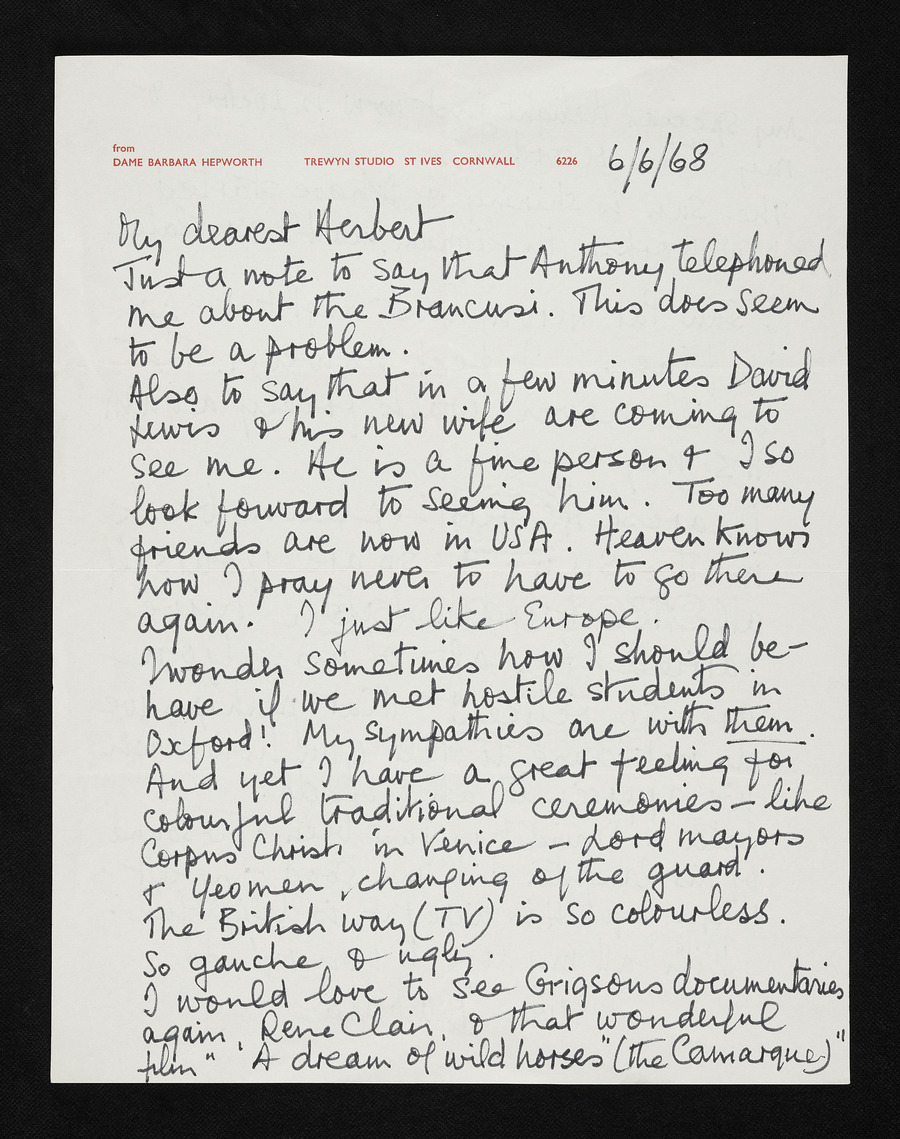 from
DAME BARBARA HEPWORTH TREWYN STUDIO ST IVES CORNWALL 6226 6/6/68
My dearest Herbert
Just a note to say that Anthony telephoned
me about the Brancusi. This does seem
to be a problem.
Also to say that in a few minutes David
Lewis & his new wife are coming to
see me. He is a fine person & I so
look forward to seeing him. Too many
friends are now in USA. Heaven knows
how I pray never to have to go there
again. I just like Europe.
I wonder sometimes how I should be-
have if we met hostile students in
Oxford! My sympathies are with them.
And yet I have a great feeling for
colourful traditional ceremonies – like
Corpus Christi in Venice – Lord mayors
& Yeomen, changing of the guard.
The British way (TV) is so colourless.
So gauche & ugly.
I would love to see Grigsons documentaries
again, Rene Clair, & that wonderful
film "A dream of wild horses" (the Camargue)"